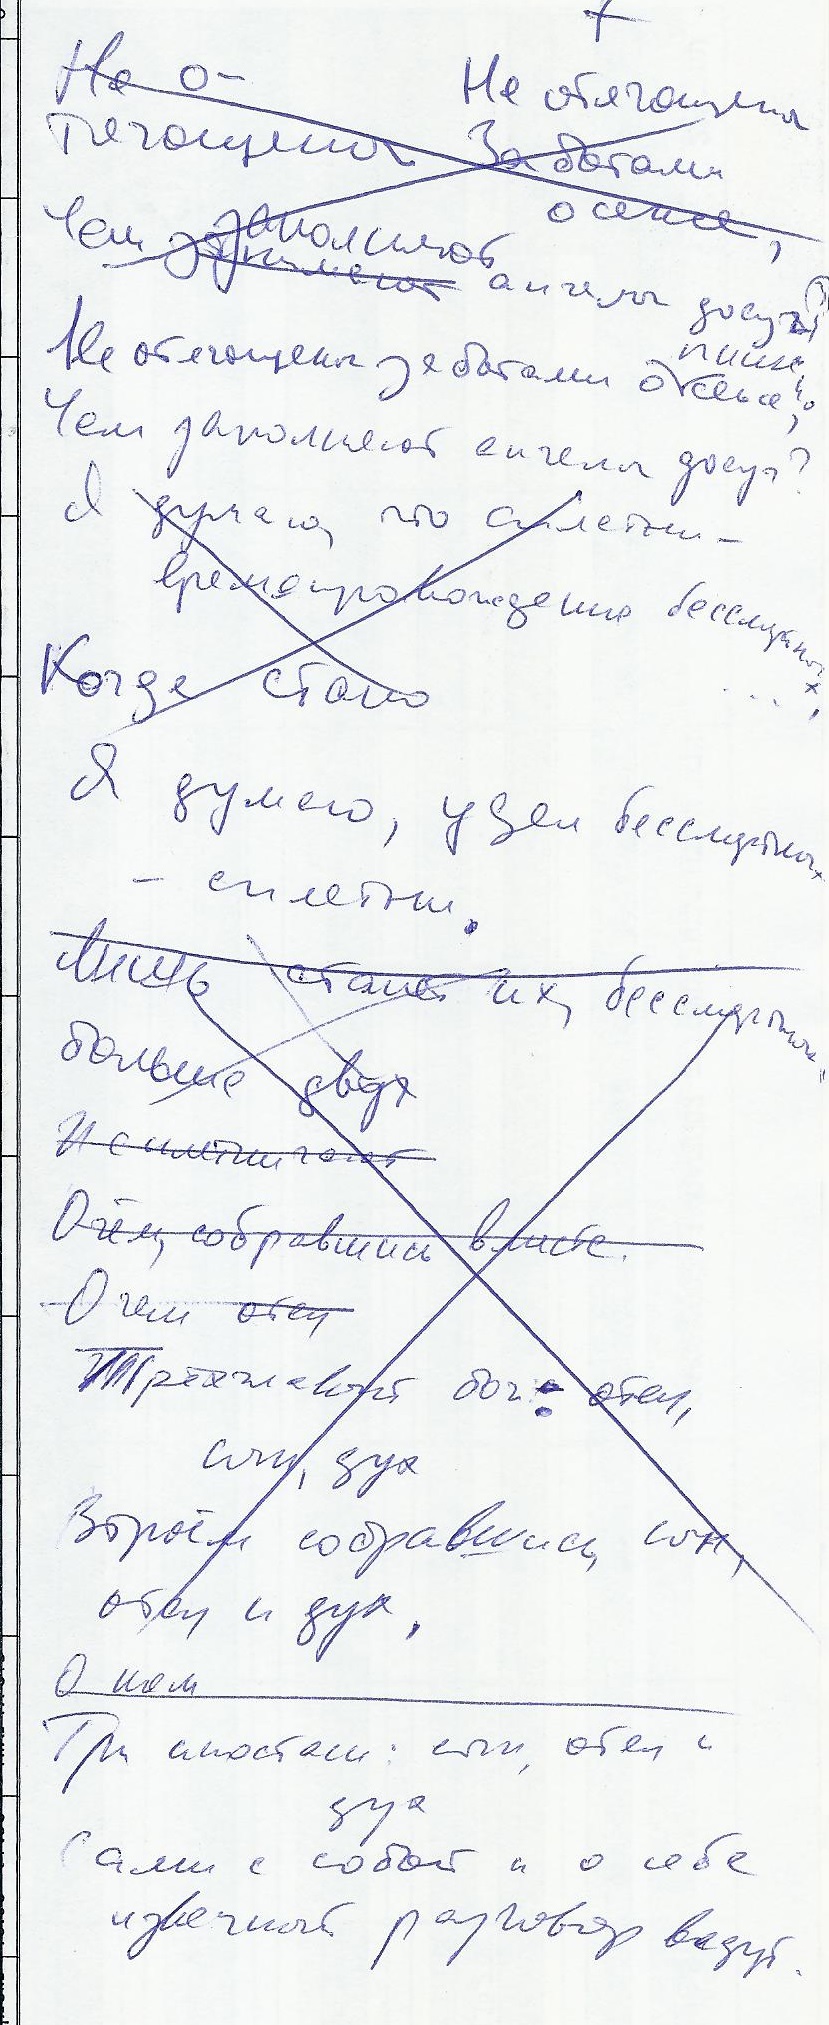 +
Не о-
тягощены
Не отягощены
Заботами
о сене,
Чем занимают заполняют ангелы досуг?
Не отягощены заботами о сене, пище,
Чем заполняют ангелы досуг?
Я думаю, что сплетни –
времяпровождение бессмертных,
...
Когда стало
Я думаю, удел бессмертных
– сплетни.
Лишь станет их, бессмертных,
больше двух
И сплетничают
О чём, собравшись вместе.
О чем отец
Трёхглавый бог: отец,
сын, дух
Втроём собравшись, сын,
отец и дух,
О ком
Три ипостаси: сын, отец и
дух
Сами с собой и о себе
извечный разговор ведут.